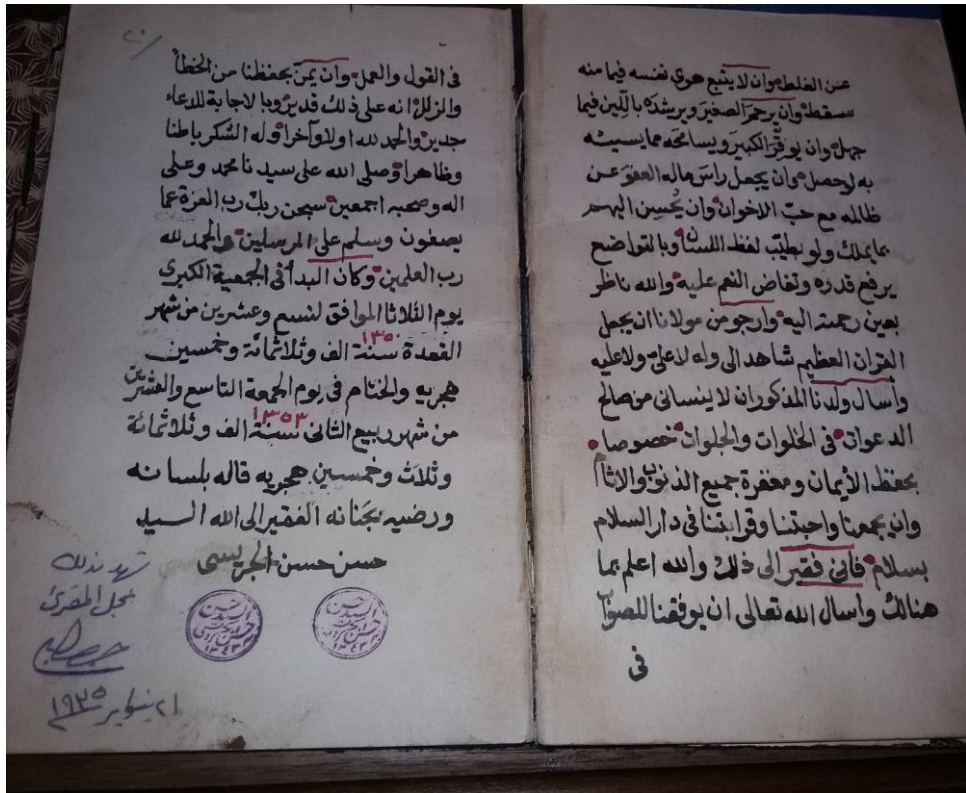 عن الغلط وان لا يتبع هوى نفسه فيما منه
سقط وان يرحم الصغير ويرشده باللين فيما
جهل وان يوقر الكبير ويسامحه مما يسيئه
به لو حصل وان يجعل راس ماله العفو عن
ظالمه مع حب الاخوان وان يحسن اليهم
بما يملك ولو بطيب لفظ اللسان وبالتواضع
يرفع قدره وتفاض النعم عليه والله ناظر
بعين رحمته اليه وارجو من مولانا ان يجعل
القران العظيم شاهد الى وله لا على ولا عليه
واسال ولدنا المذكور ان لا ينسانى من صالح
الدعوات فى الخلوات والجلوات خصوصا
بحفظ الأيمان ومغفرة جميع الذنوب والاثام
وان يجمعنا واحبتنا وقرابتنا فى دار السلام
بسلام فانى فقير الى ذلك والله اعلم بما
هنالك واسال الله تعالى ان يوفقنا للصواب
فى
٢٠
فى القول والعمل وان يمن بحفظنا من الخطأ
والزلل انه على ذلك قدير وبالاجابة للدعاء
جدير والحمد لله اولا وآخرا وله الشكر باطنا
وظاهرا وصلى الله على سيدنا محمد وعلى
اله وصحبه اجمعين سبحن ربك رب العزة عما
يصفون وسلم على المرسلين والحمد لله
رب العلمين وكان البدأ فى الجمعية الكبرى
يوم الثلاثا الموافق لتسع وعشرين من شهر
القعدة سنة ١٣٥٠ الف وثلاثمائة وخمسين
هجريه والختام فى يوم الجمعة التاسع والعشرين
من شهر ربيع الثانى سنة ١٣٥٣ الف وثلاثمائة
وثلاث وخمسين هجريه قاله بلسانه
ورضيه بجنانه الفقير الى الله السيد
حسن حسن الجريسى
السيد حسن
حسن الجريسى
١٣٤٣
السيد حسن
حسن الجريسى
١٣٤٣
شهد بذلك
نجل المقرئ
٢١ يناير ١٩٣٥